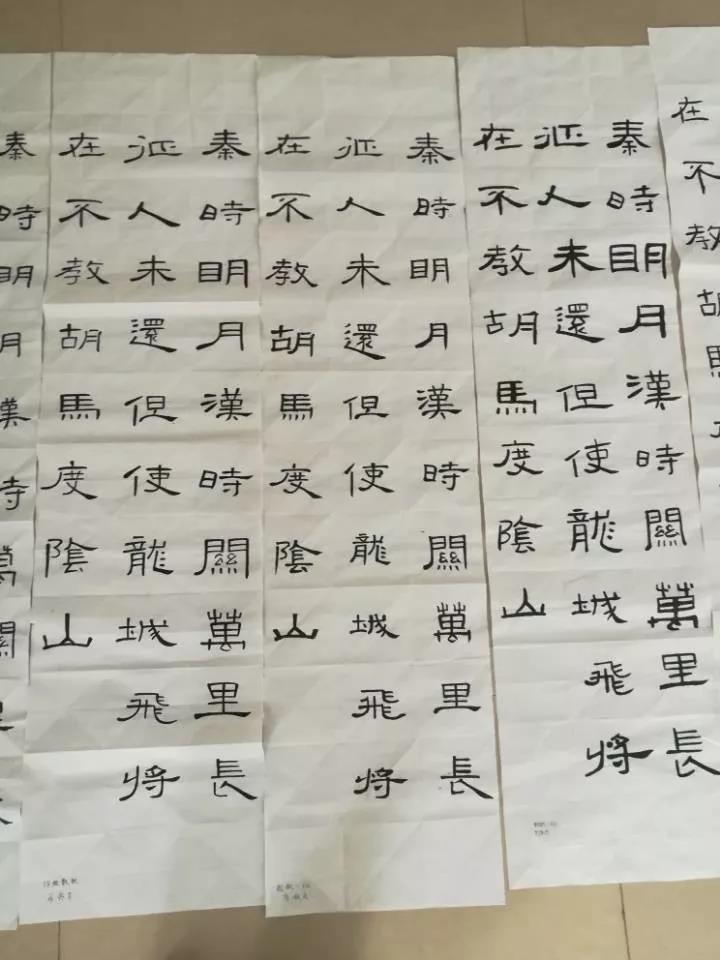 在不教胡馬
秦時眀月漢時關萬里長
征人未還但使龍城飛將
在不教胡馬度陰山
秦時眀月漢時關萬里長
征人未還但使龍城飛將
在不教胡馬度陰山
秦時眀月漢時關萬里長
征人未還但使龍城飛將
在不教胡馬度陰山
秦時眀月漢時萬關里長